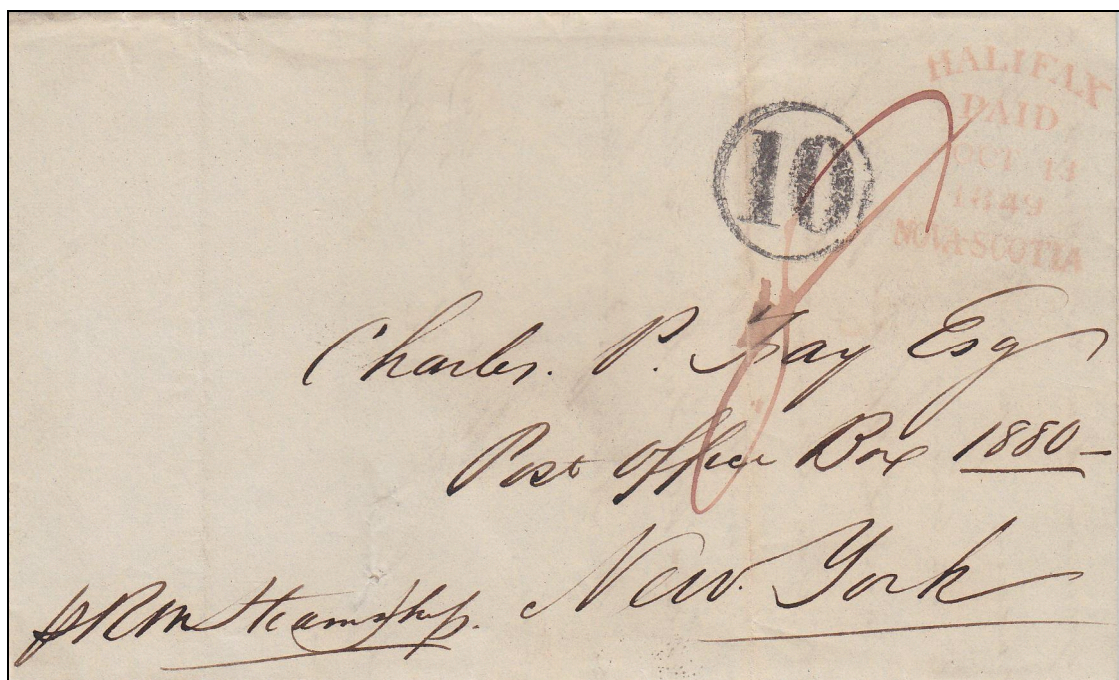 HALIFAX
PAID
OCT 13
1849
NOVA-SCOTIA
10
Charles. P. Fay Esq
Post Office Box 1880 –
New York
pRM Steamship.